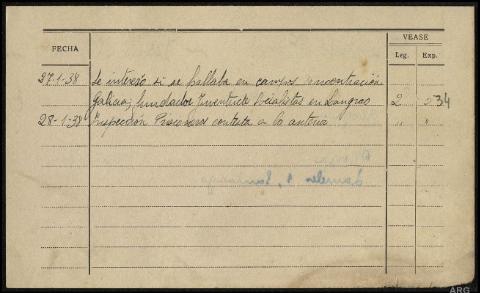 VEASE
FECHA
Leg. Exp.
27-1-38 Se interesó si se hallaba en campos concentración
Galicia, fundador Juventudes Socialistas en Langreo 2 34
28-1-38 Inspección contesta a lo anterior " "
ARG